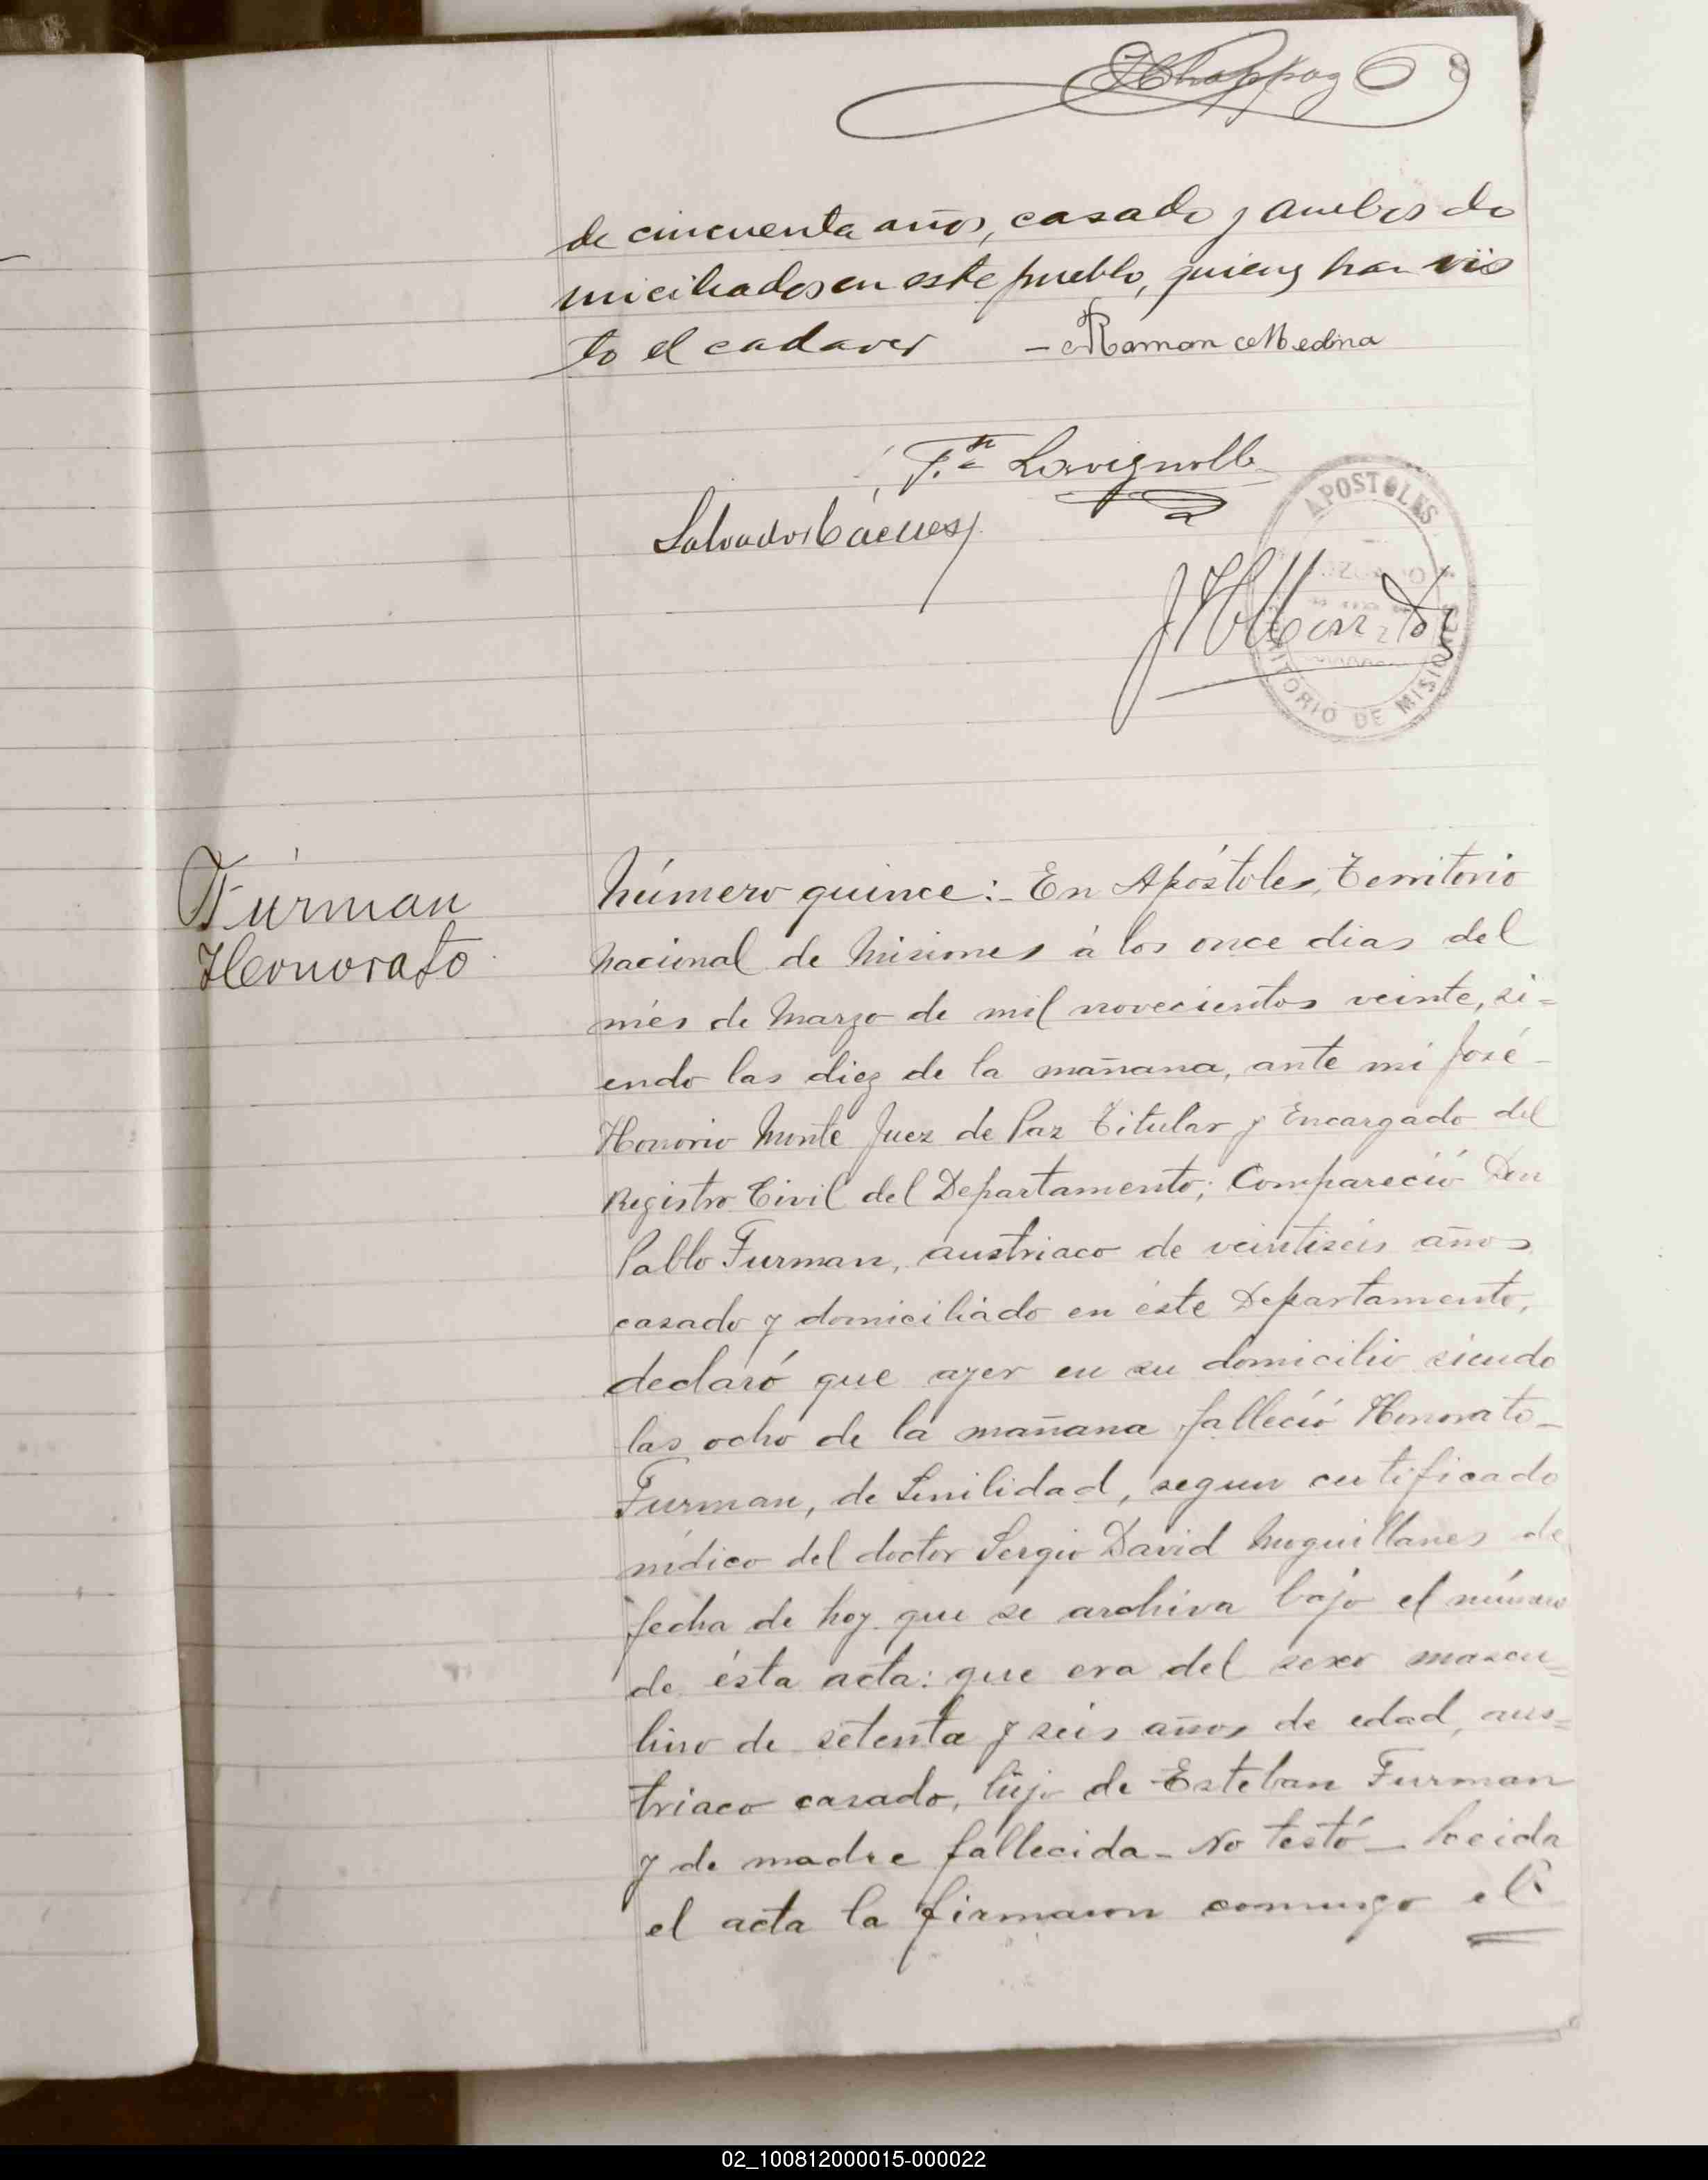 8
de cincuenta años, casado y ambos do
miciliados en este pueblo, quienes han vis
to el cadaver — Ramon Medina
Salvador Cácues
APOSTOLES
TERRITORIO DE MISIONES
Furman
Honorato
Número quince:- En Apóstoles, Territorio
Nacional de Misiones á los once dias del
més de Marzo de mil novecientos veinte, si=
endo las diez de la mañana, ante mi José-
Honorio Monte Juez de Paz Titular y Encargado del
Registro Civil del Departamento; Compareció Don
Pablo Furman, austriaco de veintiseis años
casado y domiciliado en éste Departamento,
declaró que ayer en su domicilio siendo
las ocho de la mañana falleció Honorato-
Furman, de Senilidad, segun certificado
médico del doctor Sergio David Moguillanes de
fecha de hoy que se archiva bajo el número
de ésta acta: que era del sexo mascu=
lino de setenta y seis años de edad, aus=
triaco casado, hijo de Esteban Furman
y de madre fallecida - No testó - Leida
el acta la firmaron conmigo el
02_100812000015-000022